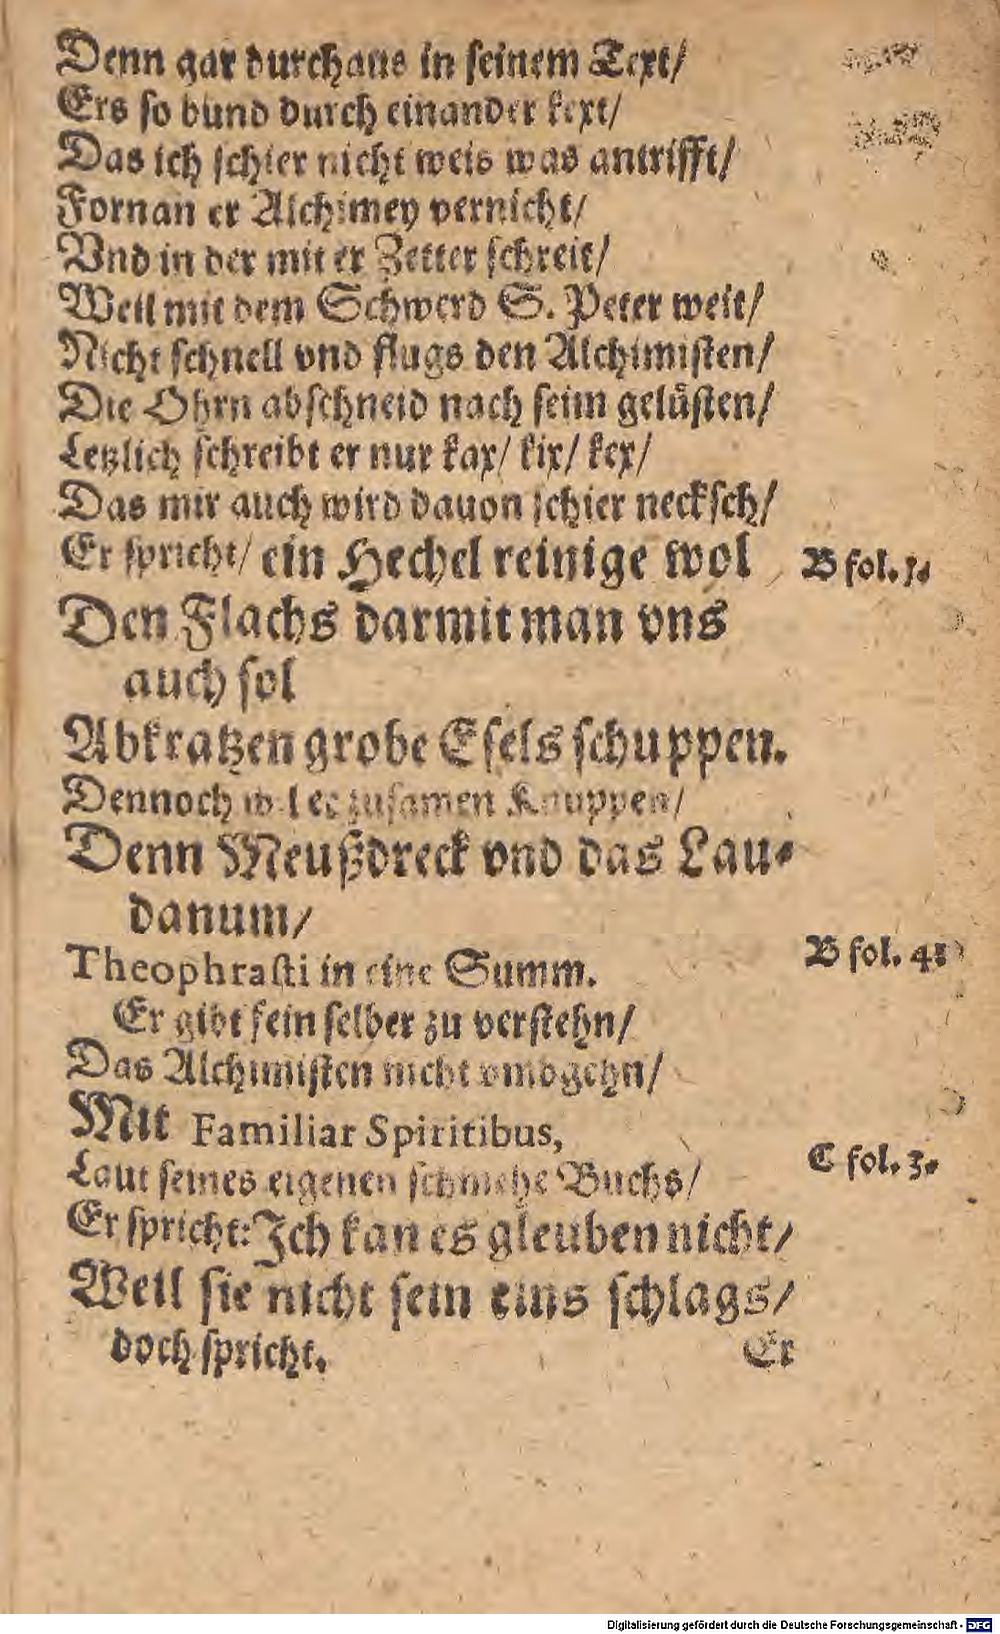 Denn gar durchaus in seinem Text/
Ers so bund durch einander kext/
Das ich schier nicht weis was antrifft/
Fornan er Alchimey vernicht/
Vnd in der mit er Zetter schreit/
Weil mit dem Schwerd S. Peter weit/
Nicht schnell vnd flugs den Alchimisten/
Die Ohrn abschneid nach seim gelüsten/
Letzlich schreibt er nur kax/ kix/ kex/
Das mir auch wird dauon schier necksch/
Er spricht/ ein Hechel reinige wol B fol. 1.
Den Flachs darmit man vns
auch sol
Abkratzen grobe Esels schuppen.
Dennoch wil er zusamen Knuppen/
Denn Meußdreck vnd das Lau-
danum/
Theophrasti in eine Summ. B fol. 4:
Er gibt fein selber zu verstehn/
Das Alchimisten nicht vmbgehn/
Mit Familiar Spiritibus,
Laut seines eigenen schmehe Buchs/ C fol. 3.
Er spricht: Ich kan es gleuben nicht/
Weil sie nicht sein eins schlags/
doch spricht. Er
Digitalisierung gefördert durch die Deutsche Forschungsgemeinschaft - DFG